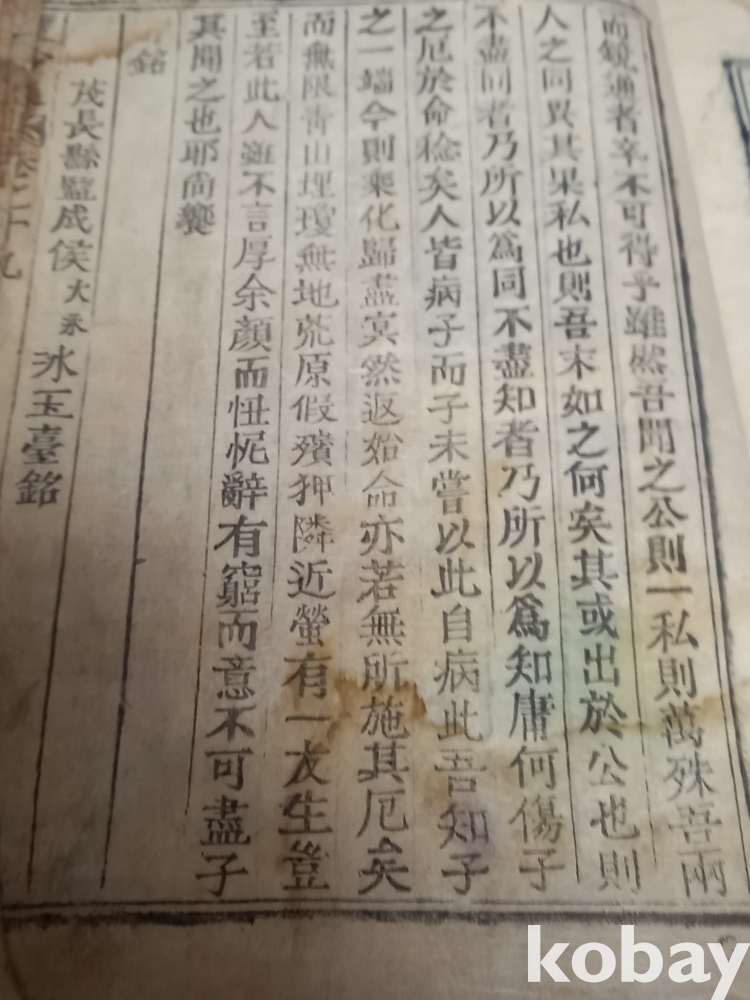 而鏡通者卒不可得乎雖然吾聞之公則一私則萬殊吾兩
人之同異其果私也則吾末如之何矣其或出於公也則
不盡同者乃所以爲同不盡知者乃所以爲知庸何傷子
之厄於命稔矣人皆病子而子未嘗以此自病此吾知子
之一端今則乘化歸盡冥然返始命亦若無所施其厄矣
而無限靑山埋瓊無地荒原假殯狎隣近螢有一友生豈
至若此人雖不言厚余顏而忸怩辭有窮而意不可盡子
其聞之也耶尙饗
銘
茂長縣監成侯大永氷玉臺銘
卷之十九
kobay